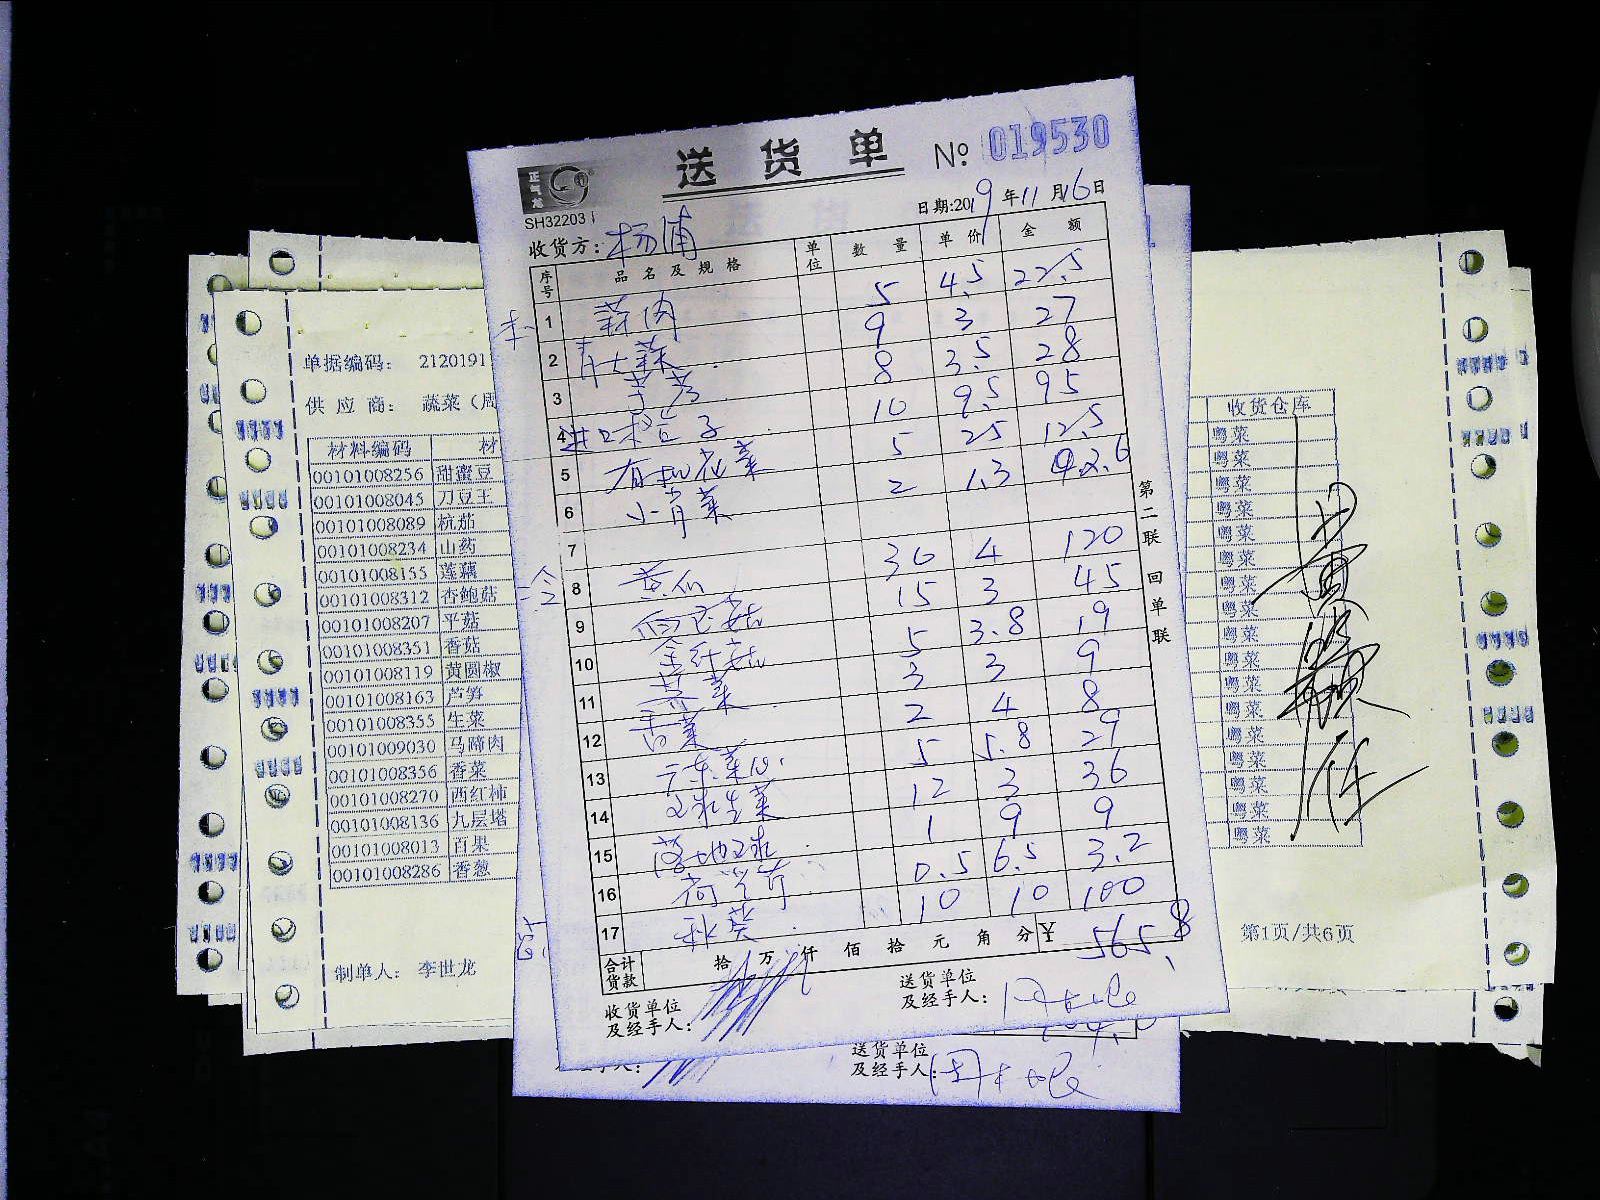 送货单 № 019530
正气龙
SH32203
日期:2019年11月16日
收货方:杨浦
序号 品名及规格 单位 数量 单价 金额
1 蒜肉 5 4.5 22.5
2 青大蒜 9 3 27
3 8 3.5 28
4 进口橙子 10 9.5 95
5 有机花菜 5 25 12.5
6 小青菜 2 1.3 2.6
7
8 黄瓜 30 4 120
9 白玉菇 15 3 45
10 金针菇 5 3.8 19
11 3 3 9
12 香菜 2 4 8
13 广东菜心 5 5.8 29
14 球生菜 12 3 36
15 落地球 1 9 9
16 荷兰芹 0.5 6.5 3.2
17 秋葵 10 10 100
合计货款 拾 万 仟 佰 拾 元 角 分 ¥ 565.8
收货单位
及经手人:
送货单位
及经手人:
第二联 回单联
送货单位
及经手人:
单据编码: 2120191
供应商: 蔬菜(周
材料编码 材
00101008256 甜蜜豆
00101008045 刀豆王
00101008089 杭茄
00101008234 山药
00101008155 莲藕
00101008312 杏鲍菇
00101008207 平菇
00101008351 香菇
00101008119 黄圆椒
00101008163 芦笋
00101008355 生菜
00101009030 马蹄肉
00101008356 香菜
00101008270 西红柿
00101008136 九层塔
00101008013 百果
00101008286 香葱
制单人: 李世龙
收货仓库
粤菜
粤菜
粤菜
粤菜
粤菜
粤菜
粤菜
粤菜
粤菜
粤菜
粤菜
粤菜
粤菜
粤菜
粤菜
粤菜
粤菜
第1页/共6页